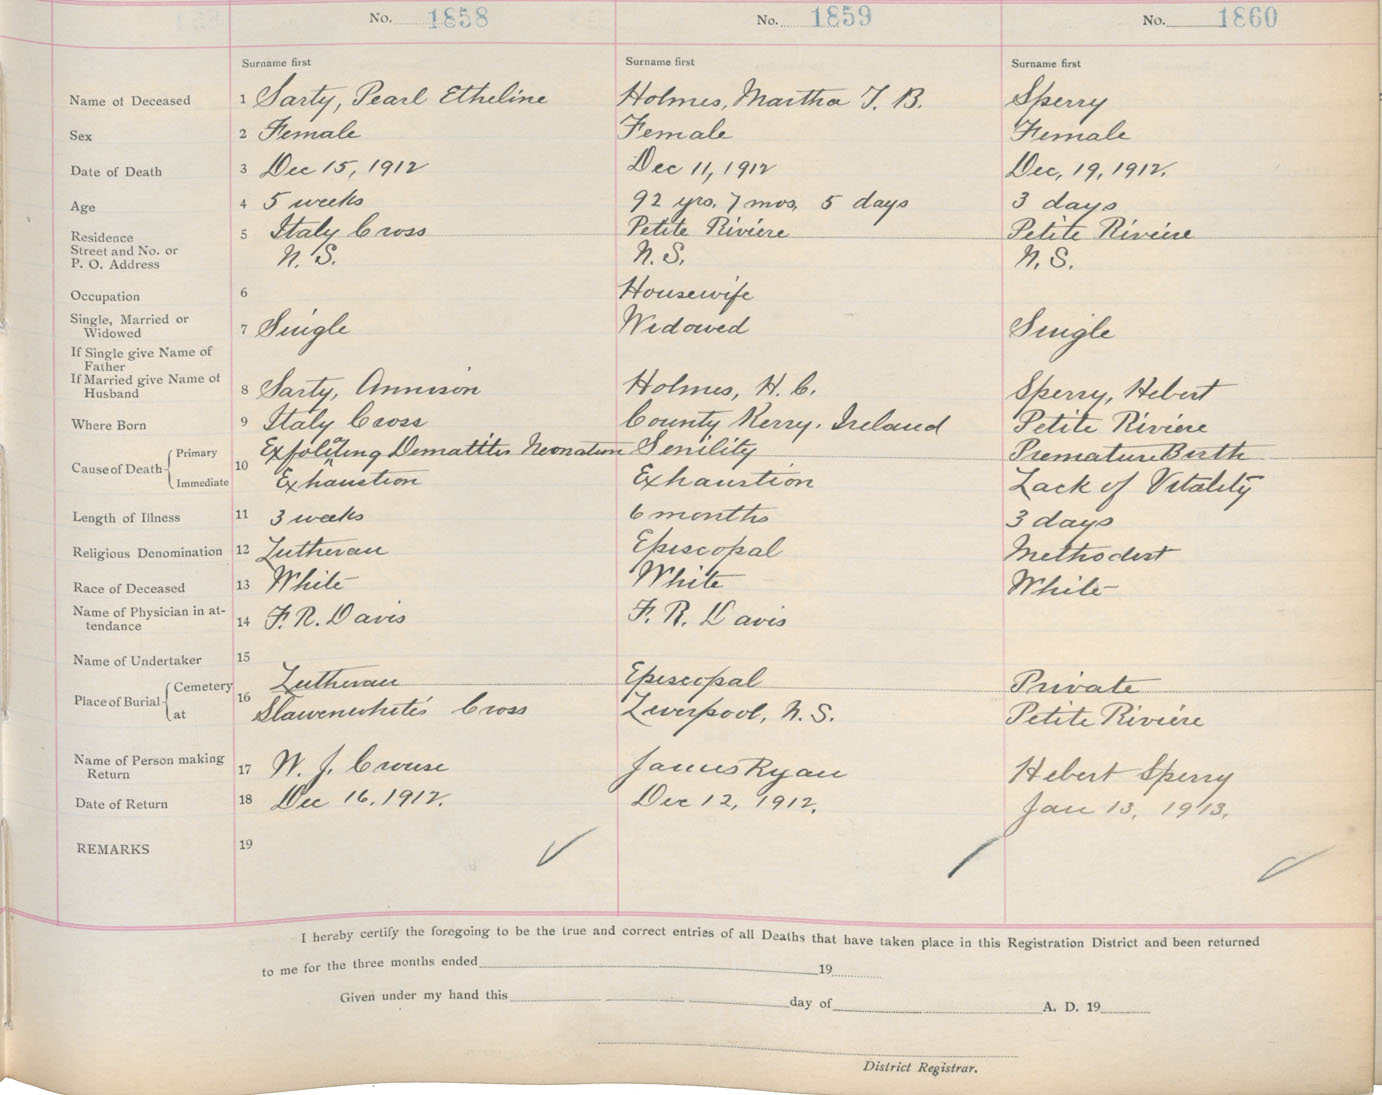 No. 1858 No. 1859 No. 1860
Surname first Surname first Surname first
Name of Deceased 1 Sarty, Pearl Etheline Holmes, Martha T. B. Sperry
Sex 2 Female Female Female
Date of Death 3 Dec 15, 1912 Dec 11, 1912 Dec, 19, 1912.
Age 4 5 weeks 92 yrs, 7 mos, 5 days 3 days
Residence 5 Italy Cross Petite Riviére Petite Riviére
Street and No. or
P. O. Address N. S. N. S. N. S.
Occupation 6 Housewife
Single, Married or
Widowed 7 Single Widowed Single
If Single give Name of
Father
If Married give Name of
Husband 8 Sarty, Annison Holmes, H. C. Sperry, Hebert
Where Born 9 Italy Cross County Kerry, Ireland Petite Riviére
Cause of Death 10 Primary Dematitis Neonatum Senility Premature Birth
Immediate Exhaustion Exhaustion Lack of Vitality
Length of Illness 11 3 weeks 6 months 3 days
Religious Denomination 12 Lutheran Episcopal Methodist
Race of Deceased 13 White White White
Name of Physician in at-
tendance 14 F. R. Davis F. R. Davis
Name of Undertaker 15
Place of Burial 16 Cemetery Lutheran Episcopal Private
at Cross Liverpool, N. S. Petite Riviére
Name of Person making
Return 17 W. J. Crouse James Ryan Hebert Sperry
Date of Return 18 Dec 16, 1912. Dec 12, 1912. Jan 13, 1913.
REMARKS 19
I hereby certify the foregoing to be the true and correct entries of all Deaths that have taken place in this Registration District and been returned
to me for the three months ended 19
Given under my hand this day of A. D. 19
District Registrar.